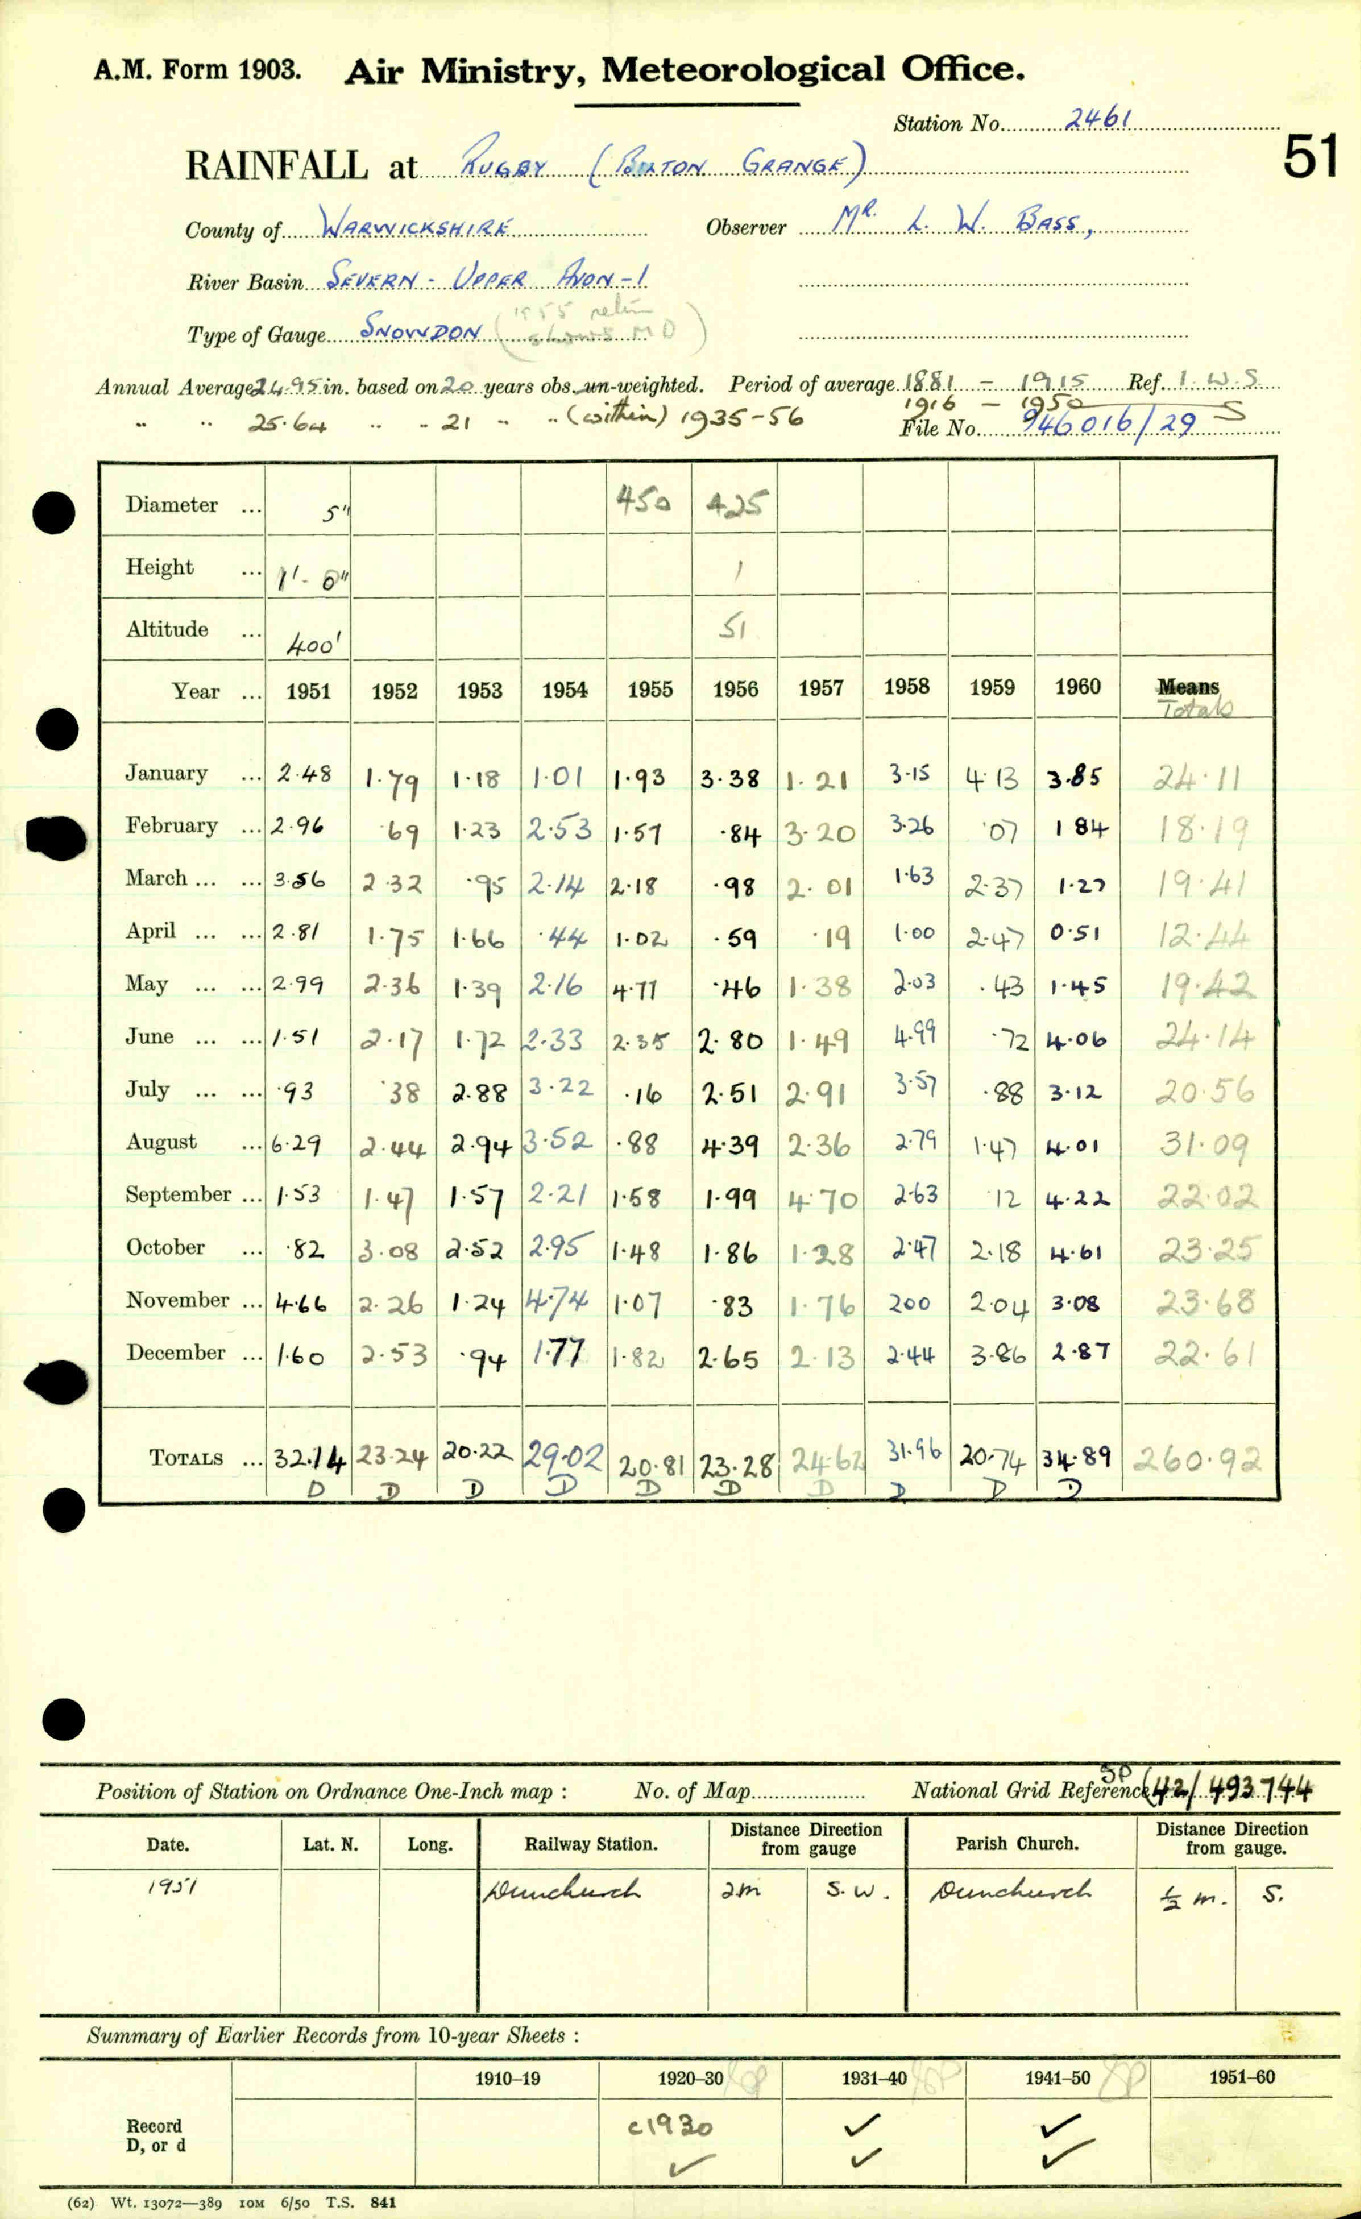 A.M. Form 1903. Air Ministry, Meteorological Office.
Station No. 2461
51
RAINFALL at RUGBY (BILTON GRANGE)
County of WARWICKSHIRE Observer MR. L. W. BASS,
River Basin SEVERN - UPPER AVON - 1
(1955 return
Type of Gauge SNOWDON shows MO)
Annual Average 24.95 in. based on 20 years obs. un-weighted. Period of average 1881 - 1915 Ref. I.W.S.
1916 - 1950 S
" " 25.64 " " 21 " " (within) 1935-56 File No. 946016/29
Diameter ... 5" 450 425
Height ... 1'-0" 1
Altitude ... 400' 51
Year ... 1951 1952 1953 1954 1955 1956 1957 1958 1959 1960 Means
Totals
January ... 2.48 1.79 1.18 1.01 1.93 3.38 1.21 3.15 4.13 3.85 24.11
February ... 2.96 .69 1.23 2.53 1.57 .84 3.20 3.26 .07 1.84 18.19
March ... ... 3.56 2.32 .95 2.14 2.18 .98 2.01 1.63 2.37 1.27 19.41
April ... ... 2.81 1.75 1.66 .44 1.02 .59 .19 1.00 2.47 0.51 12.44
May ... ... 2.99 2.36 1.39 2.16 4.77 .46 1.38 2.03 .43 1.45 19.42
June ... ... 1.51 2.17 1.72 2.33 2.35 2.80 1.49 4.99 .72 4.06 24.14
July ... ... .93 .38 2.88 3.22 .16 2.51 2.91 3.57 .88 3.12 20.56
August ... 6.29 2.44 2.94 3.52 .88 4.39 2.36 2.79 1.47 4.01 31.09
September ... 1.53 1.47 1.57 2.21 1.58 1.99 4.70 2.63 .12 4.22 22.02
October ... .82 3.08 2.52 2.95 1.48 1.86 1.28 2.47 2.18 4.61 23.25
November ... 4.66 2.26 1.24 4.74 1.07 .83 1.76 200 2.04 3.08 23.68
December ... 1.60 2.53 .94 1.77 1.82 2.65 2.13 2.44 3.86 2.87 22.61
TOTALS ... 32.14 23.24 20.22 29.02 20.81 23.28 24.62 31.96 20.74 34.89 260.92
D D D D D D D D D D
Position of Station on Ordnance One-Inch map : No. of Map National Grid Reference SP (42/ 493744
Date. Lat. N. Long. Railway Station. Distance from Direction gauge Parish Church. Distance from Direction gauge.
1951 Dunchurch 2m S.W. Dunchurch ½ m. S.
Summary of Earlier Records from 10-year Sheets :
1910–19 1920–30 1931–40 1941–50 1951–60
Record c1930 ✓ ✓
D, or d ✓ ✓ ✓
(62) Wt. 13072—389 10M 6/50 T.S. 841